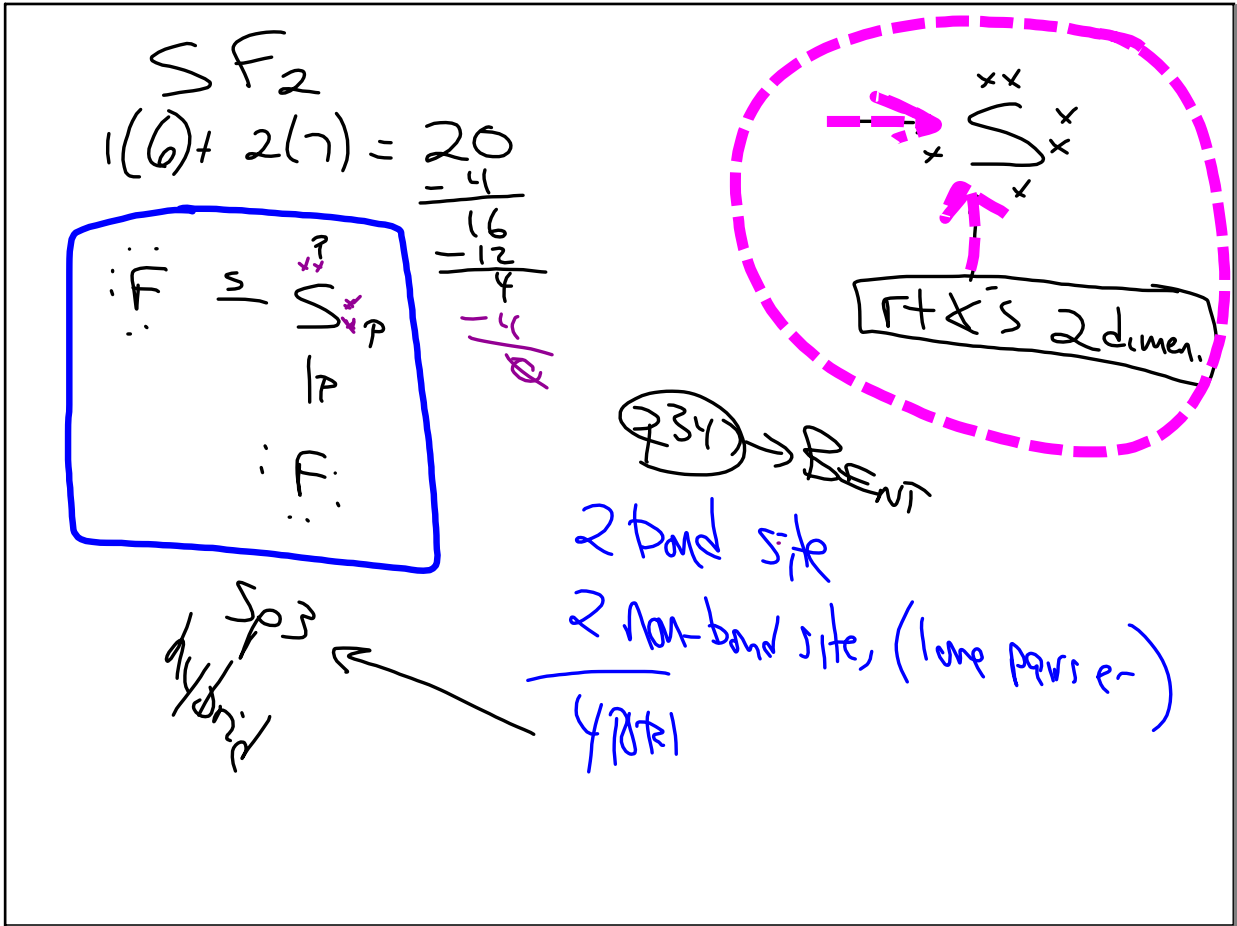 SF2
1(6)+ 2(7) = 20
- 4
16
- 12
4
- 4
0
:F s S
P
P
|P
F
xx
S x
x x
x
rt x's 2 dimen.
234 → BENT
2 bond site
2 non-bond site, (lone pairs e-)
4 total
sp3
hybrid